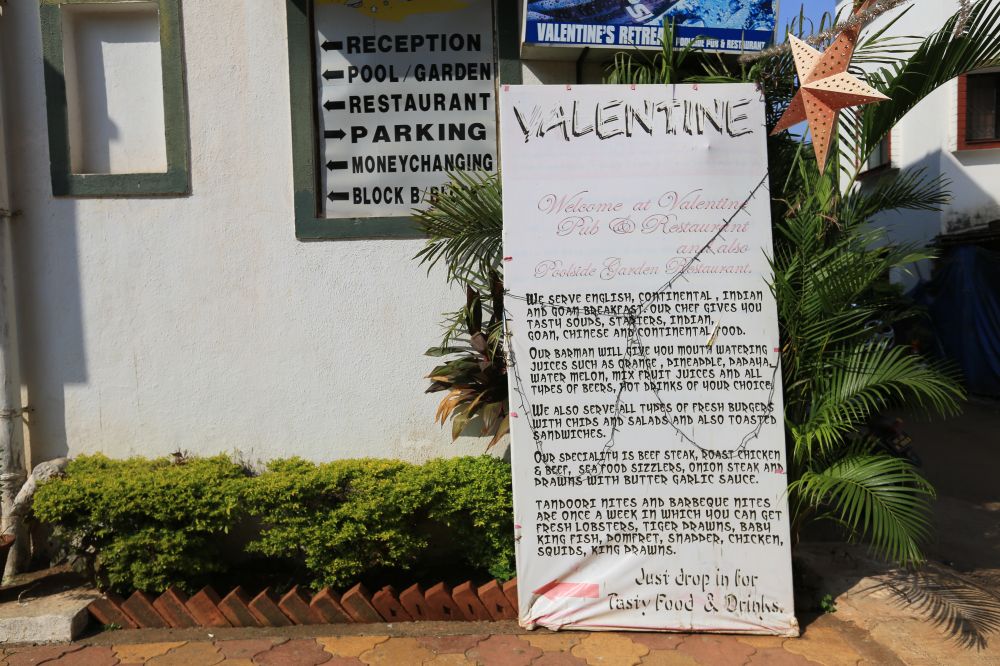 VALENTINE'S RETREAT POOLSIDE PUB & RESTAURANT
RECEPTION
POOL/GARDEN
RESTAURANT
PARKING
MONEYCHANGING
BLOCK B
VALENTINE
Welcome at Valentine
Pub & Restaurant
and also
Poolside Garden Restaurant.
WE SERVE ENGLISH, CONTINENTAL , INDIAN
AND GOAN BREAKFAST. OUR CHEF GIVES YOU
TASTY SOUPS, STARTERS, INDIAN,
GOAN, CHINESE AND CONTINENTAL FOOD.
OUR BARMAN WILL GIVE YOU MOUTH WATERING
JUICES SUCH AS ORANGE , PINEAPPLE, PAPAYA,
WATER MELON, MIX FRUIT JUICES AND ALL
TYPES OF BEERS, HOT DRINKS OF YOUR CHOICE.
WE ALSO SERVE ALL TYPES OF FRESH BURGERS
WITH CHIPS AND SALADS AND ALSO TOASTED
SANDWICHES.
OUR SPECIALITY IS BEEF STEAK, ROAST CHICKEN
& BEEF, SEAFOOD SIZZLERS, ONION STEAK AND
PRAWNS WITH BUTTER GARLIC SAUCE.
TANDOORI NITES AND BARBEQUE NITES
ARE ONCE A WEEK IN WHICH YOU CAN GET
FRESH LOBSTERS, TIGER PRAWNS, BABY
KING FISH, POMFRET, SNAPPER, CHICKEN,
SQUIDS, KING PRAWNS.
Just drop in for
Tasty Food & Drinks.